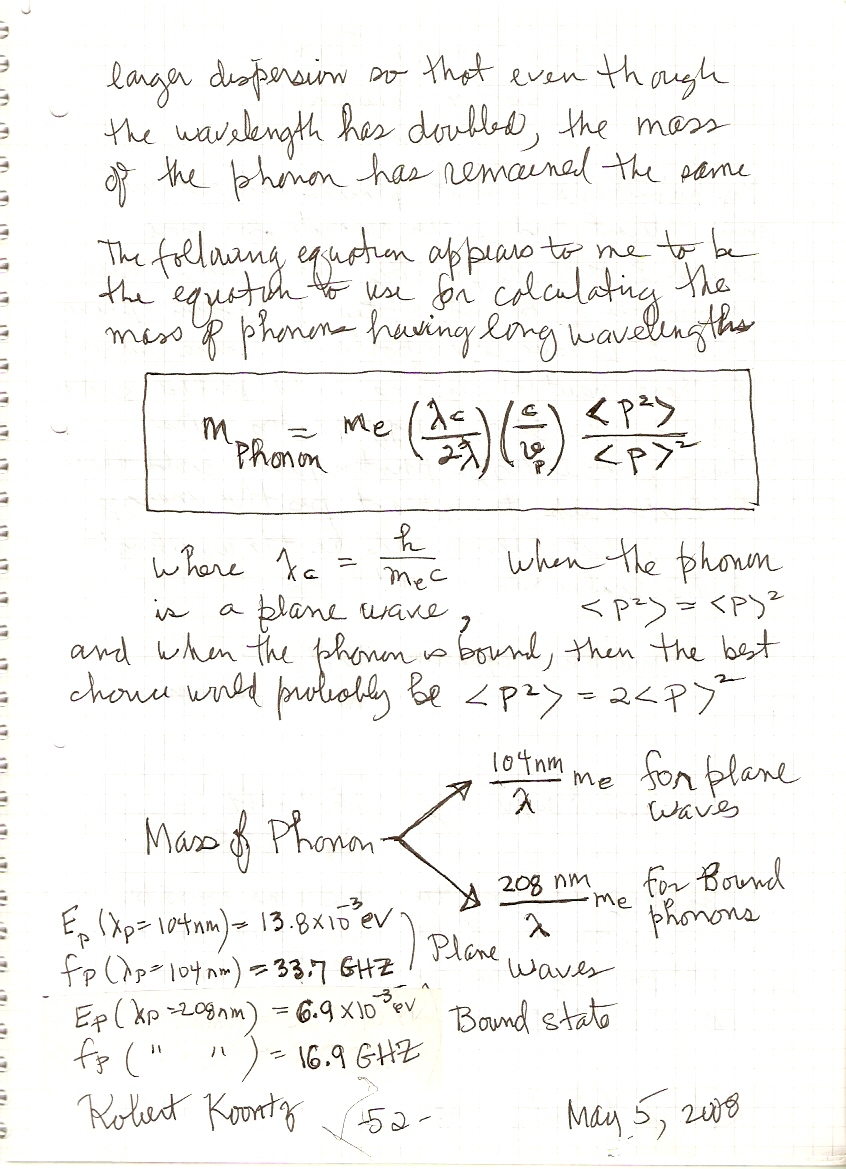 larger dispersion so that even though
the wavelength has doubled, the mass
of the phonon has remained the same
The following equation appears to me to be
the equation to use for calculating the
mass of phonons having long wavelengths
m phonon = me (λc/2λ) (c/vp) <p²>/<p>²
where λc = h/mec when the phonon
is a plane wave, <p²> = <p>²
and when the phonon is bound, then the best
choice would probably be <p²> = 2<p>²
104nm/λ me for plane
waves
Mass of Phonon
208 nm/λ me for Bound
phonons
Ep (λp=104nm) = 13.8×10⁻³ eV
fp (λp=104nm) = 33.7 GHZ
Plane waves
Ep (λp=208nm) = 6.9×10⁻³ eV
Bound state
fp ( " " ) = 16.9 GHZ
Robert Koontz -52- May 5, 2008